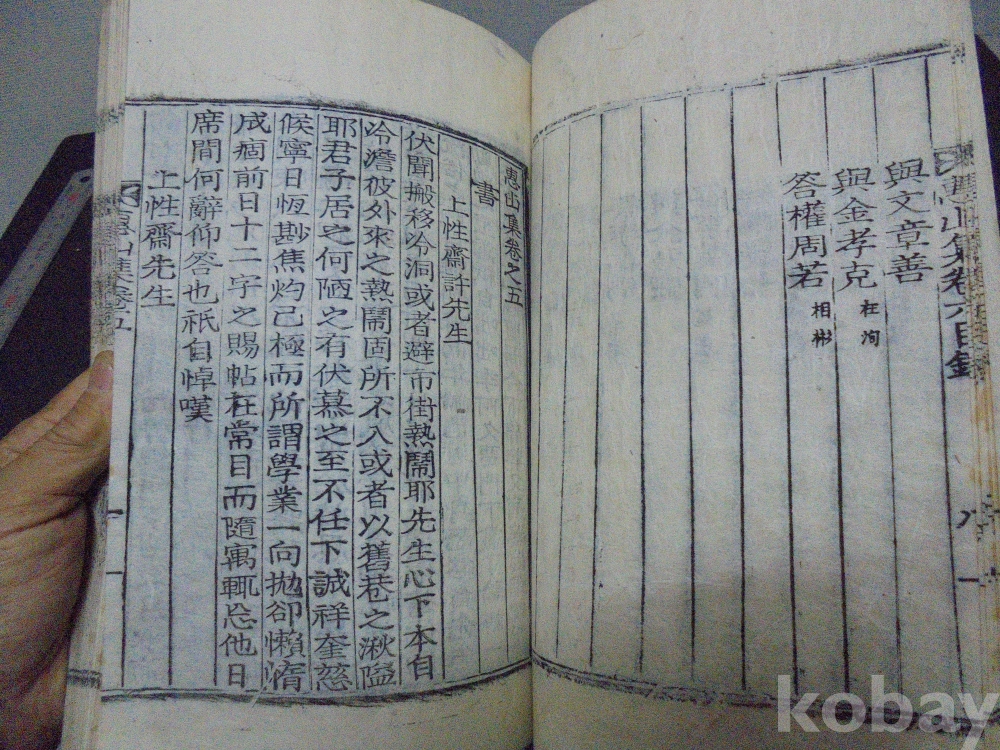 惠山集卷六目錄
八
與文章善
與金孝克 在洵
答權周若 相彬
惠山集卷之五
書
上性齋許先生
伏聞搬移冷洞或者避市街熱鬧耶先生心下本自
冷澹彼外來之熱鬧固所不入或者以舊巷之湫隘
耶君子居之何陋之有伏慕之至不任下誠祥奎慈
候寧日恆尠焦灼已極而所謂學業一向拋卻懶惰
成痼前日十二字之賜帖在常目而隨寓輒忘他日
席間何辭仰答也祇自悼嘆
上性齋先生
惠山集卷五
一
kobay